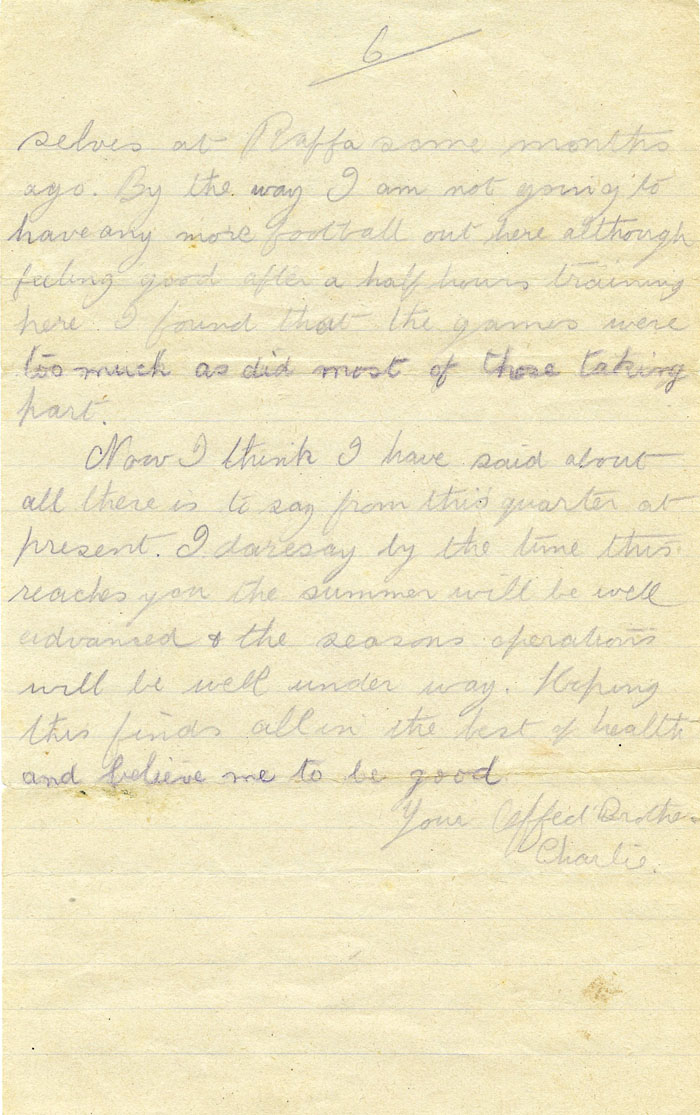 6
selves at Raffa some months
ago. By the way I am not going to
have any more football out here although
feeling good after a half hours training
here. I found that the games were
too much as did most of those taking
part.
Now I think I have said about
all there is to say from this quarter at
present. I daresay by the time this
reaches you the summer will be well
advanced & the seasons operations
will be well under way. Hoping
this finds all in the best of health
and believe me to be good.
Your Affec'd Brother
Charlie.